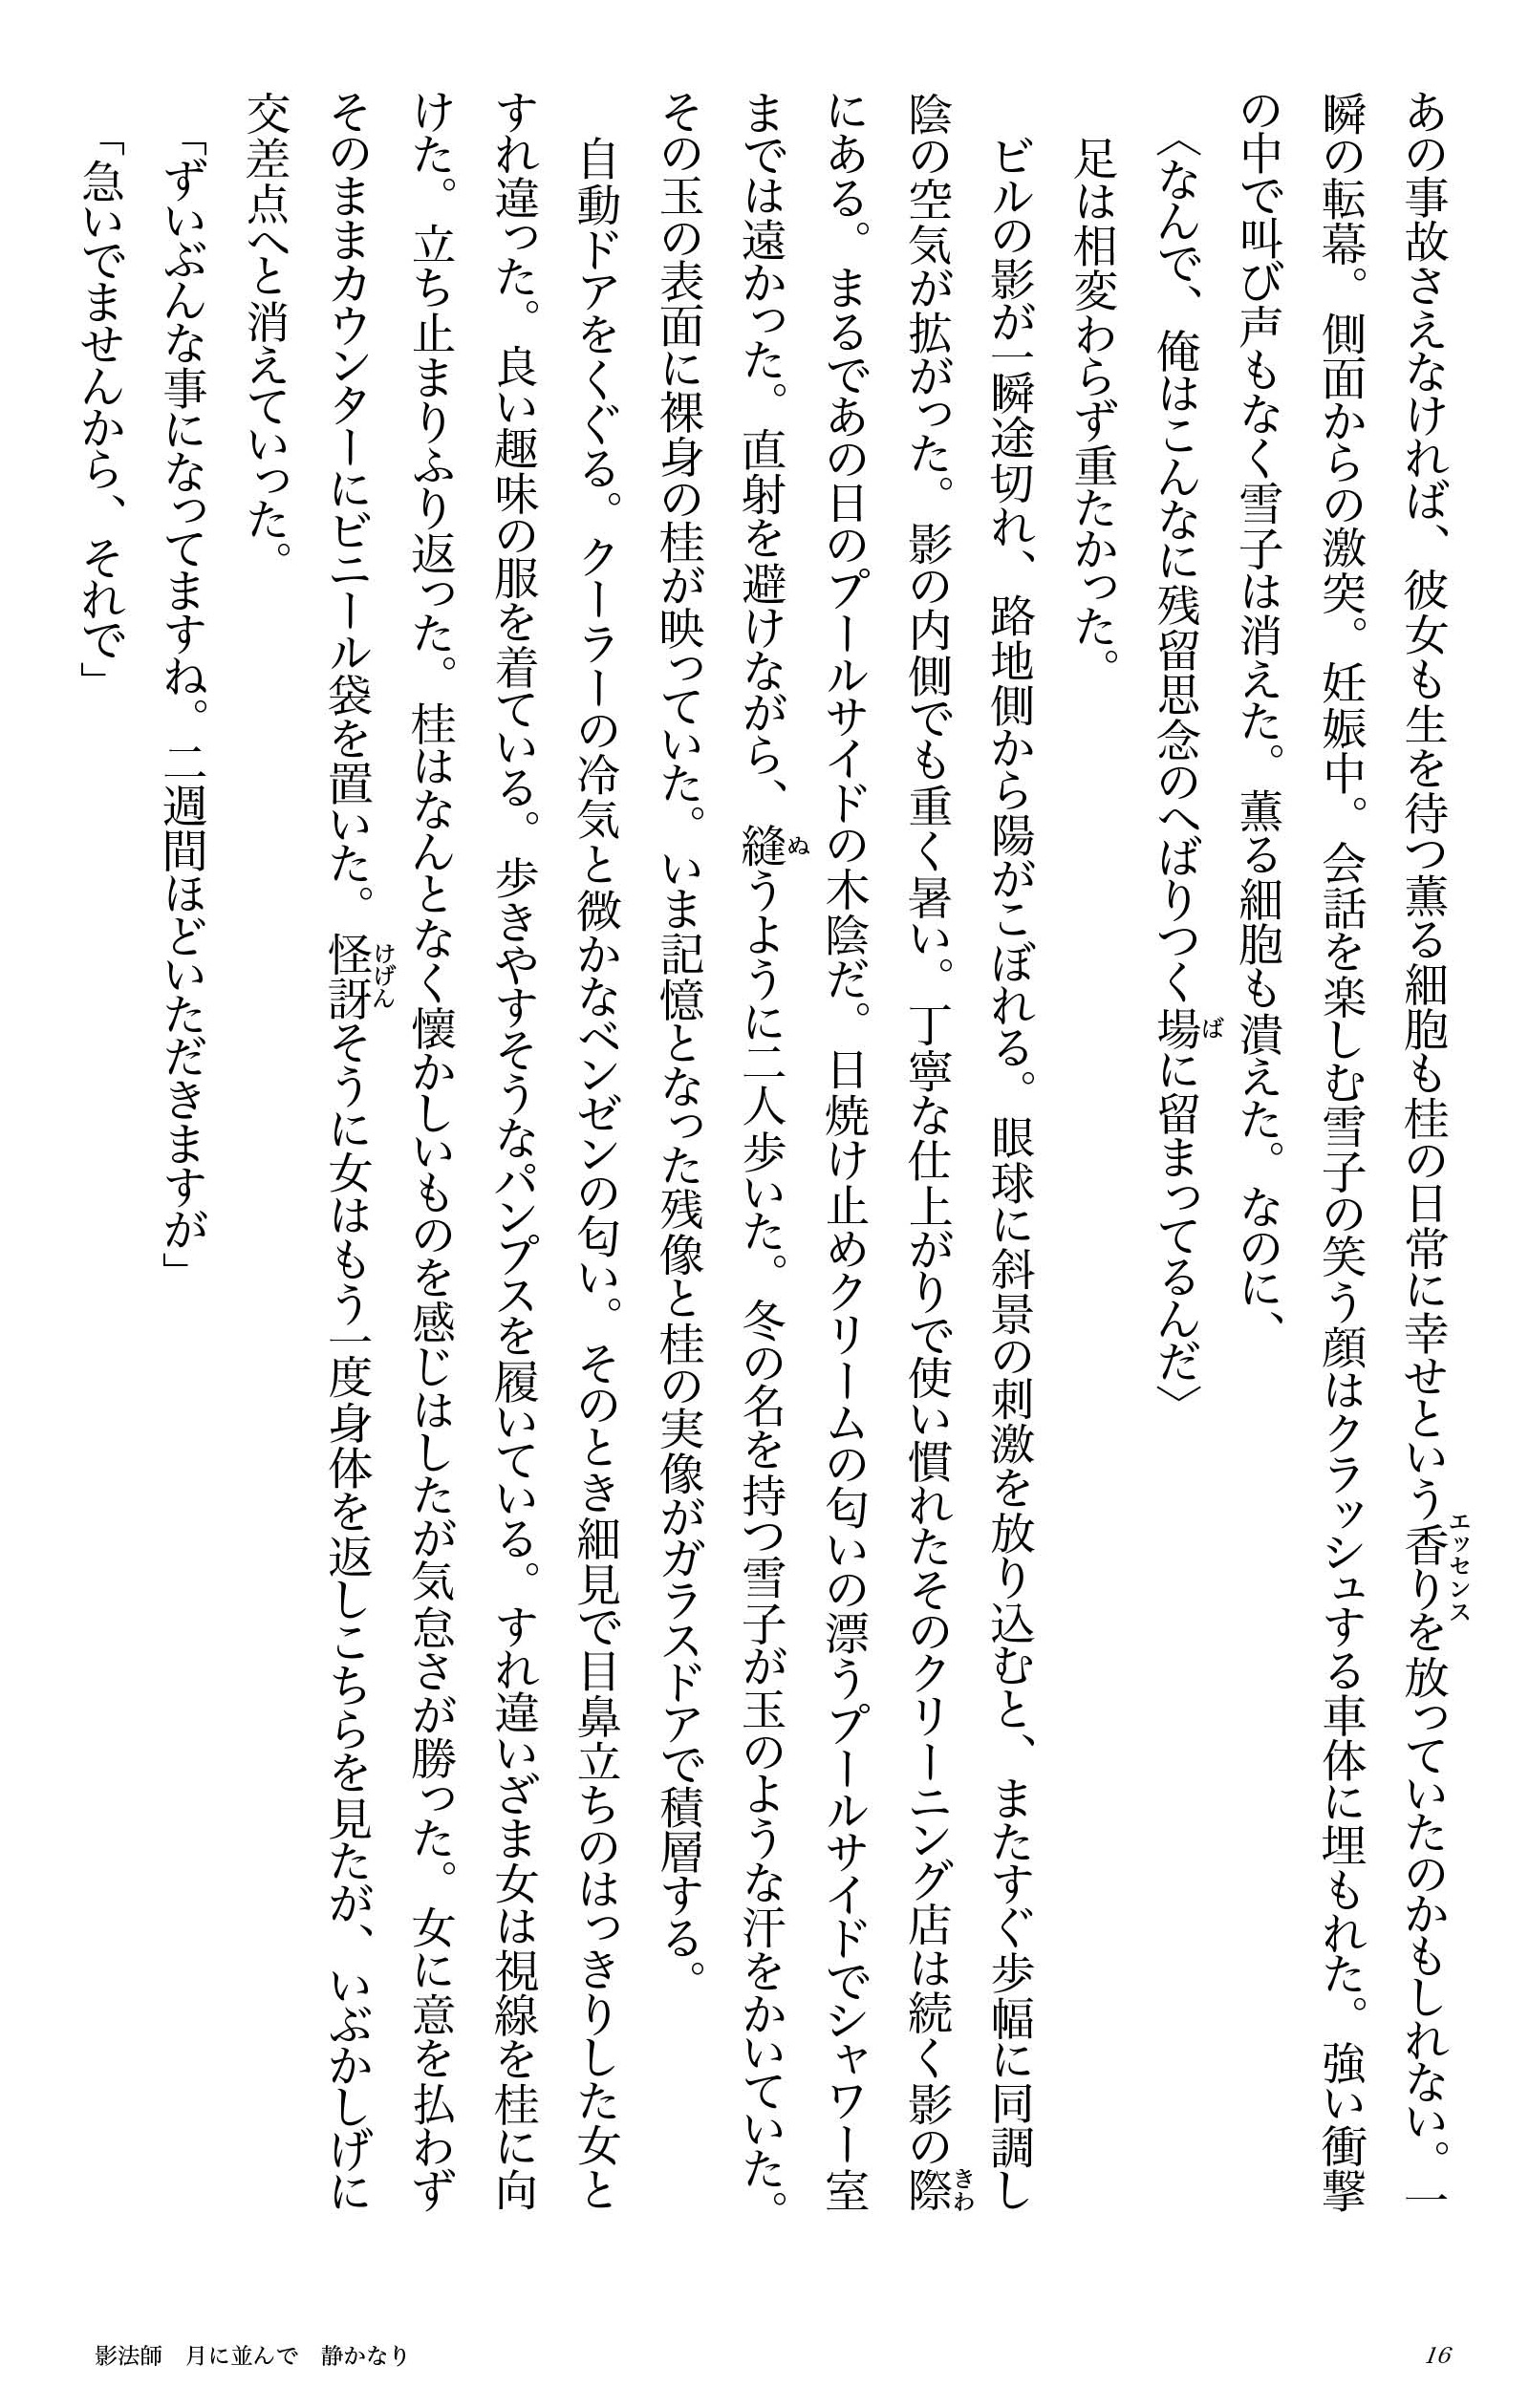 あの事故さえなければ、彼女も生を待つ薫る細胞も桂の日常に幸せという香りを放っていたのかもしれない。一
エッセンス
瞬の転幕。側面からの激突。妊娠中。会話を楽しむ雪子の笑う顔はクラッシュする車体に埋もれた。強い衝撃
の中で叫び声もなく雪子は消えた。薫る細胞も潰えた。なのに、
〈なんで、俺はこんなに残留思念のへばりつく場に留まってるんだ〉
ば
足は相変わらず重たかった。
ビルの影が一瞬途切れ、路地側から陽がこぼれる。眼球に斜景の刺激を放り込むと、またすぐ歩幅に同調し
陰の空気が拡がった。影の内側でも重く暑い。丁寧な仕上がりで使い慣れたそのクリーニング店は続く影の際
きわ
にある。まるであの日のプールサイドの木陰だ。日焼け止めクリームの匂いの漂うプールサイドでシャワー室
までは遠かった。直射を避けながら、縫うように二人歩いた。冬の名を持つ雪子が玉のような汗をかいていた。
ぬ
その玉の表面に裸身の桂が映っていた。いま記憶となった残像と桂の実像がガラスドアで積層する。
自動ドアをくぐる。クーラーの冷気と微かなベンゼンの匂い。そのとき細見で目鼻立ちのはっきりした女と
すれ違った。良い趣味の服を着ている。歩きやすそうなパンプスを履いている。すれ違いざま女は視線を桂に向
けた。立ち止まりふり返った。桂はなんとなく懐かしいものを感じはしたが気怠さが勝った。女に意を払わず
そのままカウンターにビニール袋を置いた。怪訝そうに女はもう一度身体を返しこちらを見たが、いぶかしげに
けげん
交差点へと消えていった。
「ずいぶんな事になってますね。二週間ほどいただきますが」
「急いでませんから、それで」
影法師　月に並んで　静かなり
16